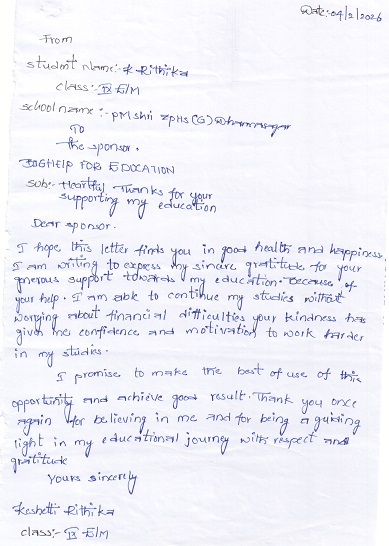 Date:-04/2/2026
From
student name:- K Rithika
class:- IX E/M
school name :- PM shri ZPHS(G) Dharmasagar
To
the sponsor.
HELP FOR EDUCATION
sub:- Heartful Thanks for your
supporting my education
Dear sponsor.
I hope this letter finds you in good health and happiness.
I am writing to express my sincere gratitude for your
generous support towards my education. Because of
your help. I am able to continue my studies without
worrying about financial difficulties your kindness has
given me confidence and motivation to work harder
in my studies.
I promise to make the best of use of this
opportunity and achieve good result. Thank you once
again for believing in me and for being a guiding
light in my educational journey with respect and
gratitude
Yours sincerely
Keshetti Rithika
class:- IX E/M